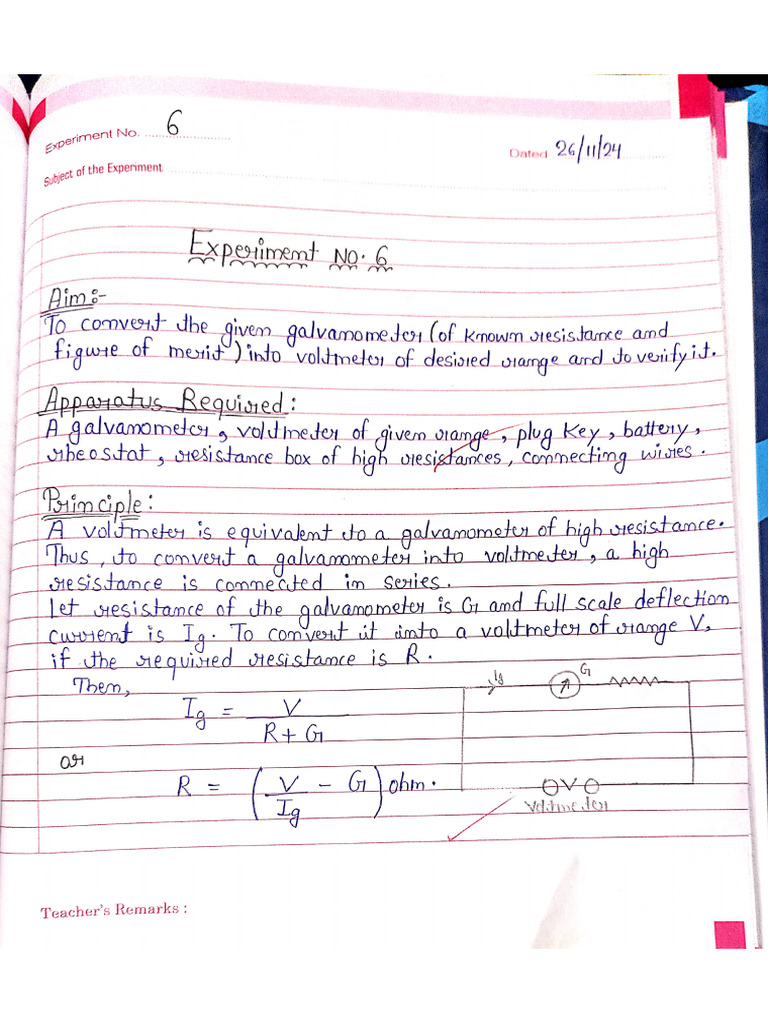 Experiment No. 6
Dated 26/11/24
Subject of the Experiment
Experiment No. 6
Aim:-
To convert the given galvanometer (of known resistance and
figure of merit) into voltmeter of desired range and to verify it.
Apparatus Required:
A galvanometer, voltmeter of given range, plug key, battery,
rheostat, resistance box of high resistances, connecting wires.
Principle:
A voltmeter is equivalent to a galvanometer of high resistance.
Thus, to convert a galvanometer into voltmeter, a high
resistance is connected in series.
Let resistance of the galvanometer is G and full scale deflection
current is Ig. To convert it into a voltmeter of range V,
if the required resistance is R.
Then,
Ig = V / (R + G)
or
R = (V / Ig - G) ohm.
Ig
G
V
Voltmeter
Teacher's Remarks :